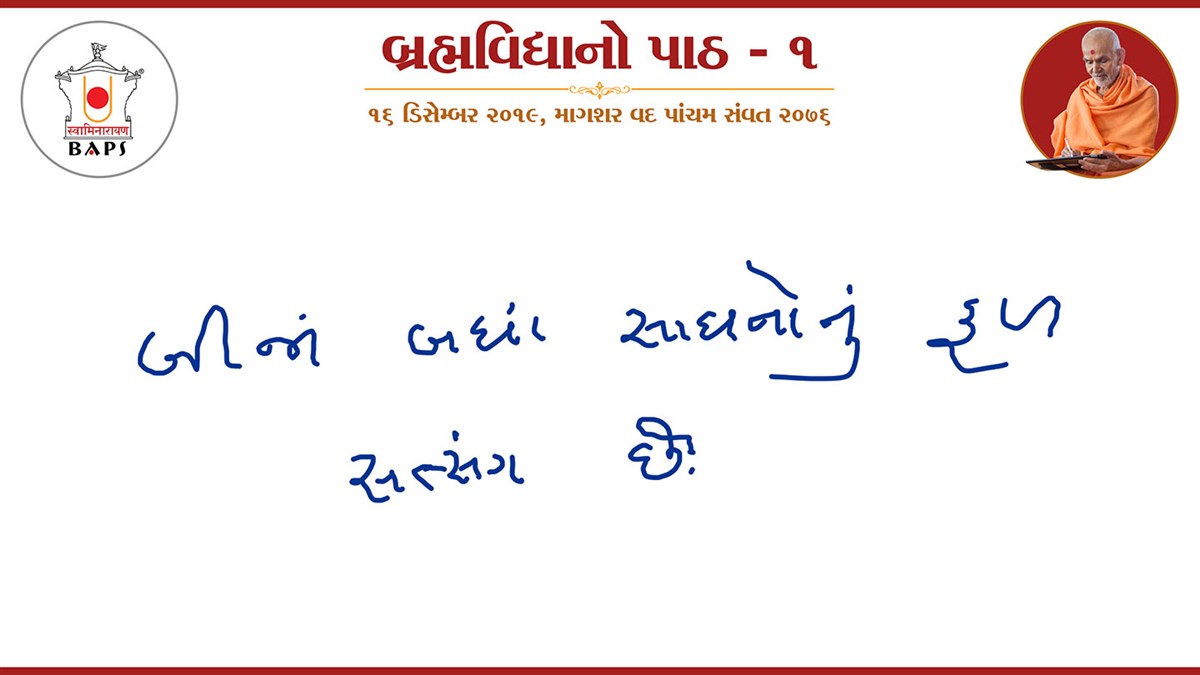 બ્રહ્મવિદ્યાનો પાઠ - ૧
૧૬ ડિસેમ્બર ૨૦૧૯, માગશર વદ પાંચમ સંવત ૨૦૭૬
®
स्वामिनारायण
BAPS
બીજાં બધાં સાધનોનું ફળ
સત્સંગ છે.